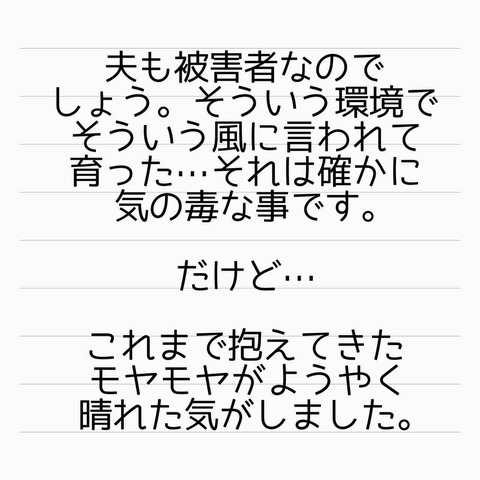 夫も被害者なので
しょう。そういう環境で
そういう風に言われて
育った…それは確かに
気の毒な事です。
だけど…
これまで抱えてきた
モヤモヤがようやく
晴れた気がしました。